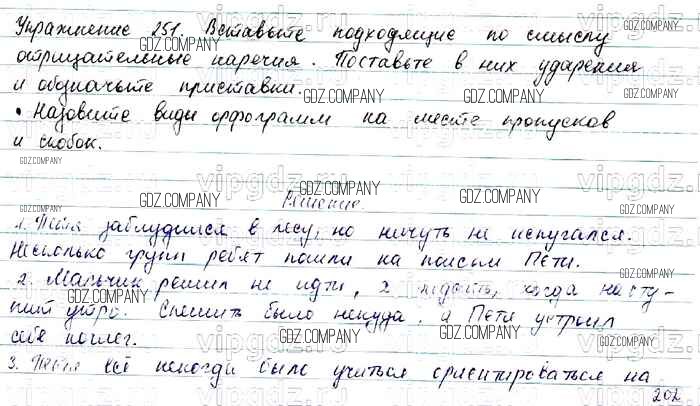 Упражнение 251. Вставьте подходящие по смыслу
отрицательные наречия. Поставьте в них ударения
и обозначьте приставки.
• Назовите виды орфограмм на месте пропусков
и скобок.
Решение.
1. Петя заблудился в лесу, но ничуть не испугался.
Несколько групп ребят пошли на поиски Пети.
2. Мальчик решил не идти, а подождать, когда насту-
пит утро. Спешить было некуда. Петя устроил
себе ночлег.
3. Пете всё некогда было учиться ориентироваться на
202
GDZ.COMPANY
vipgdz.ru